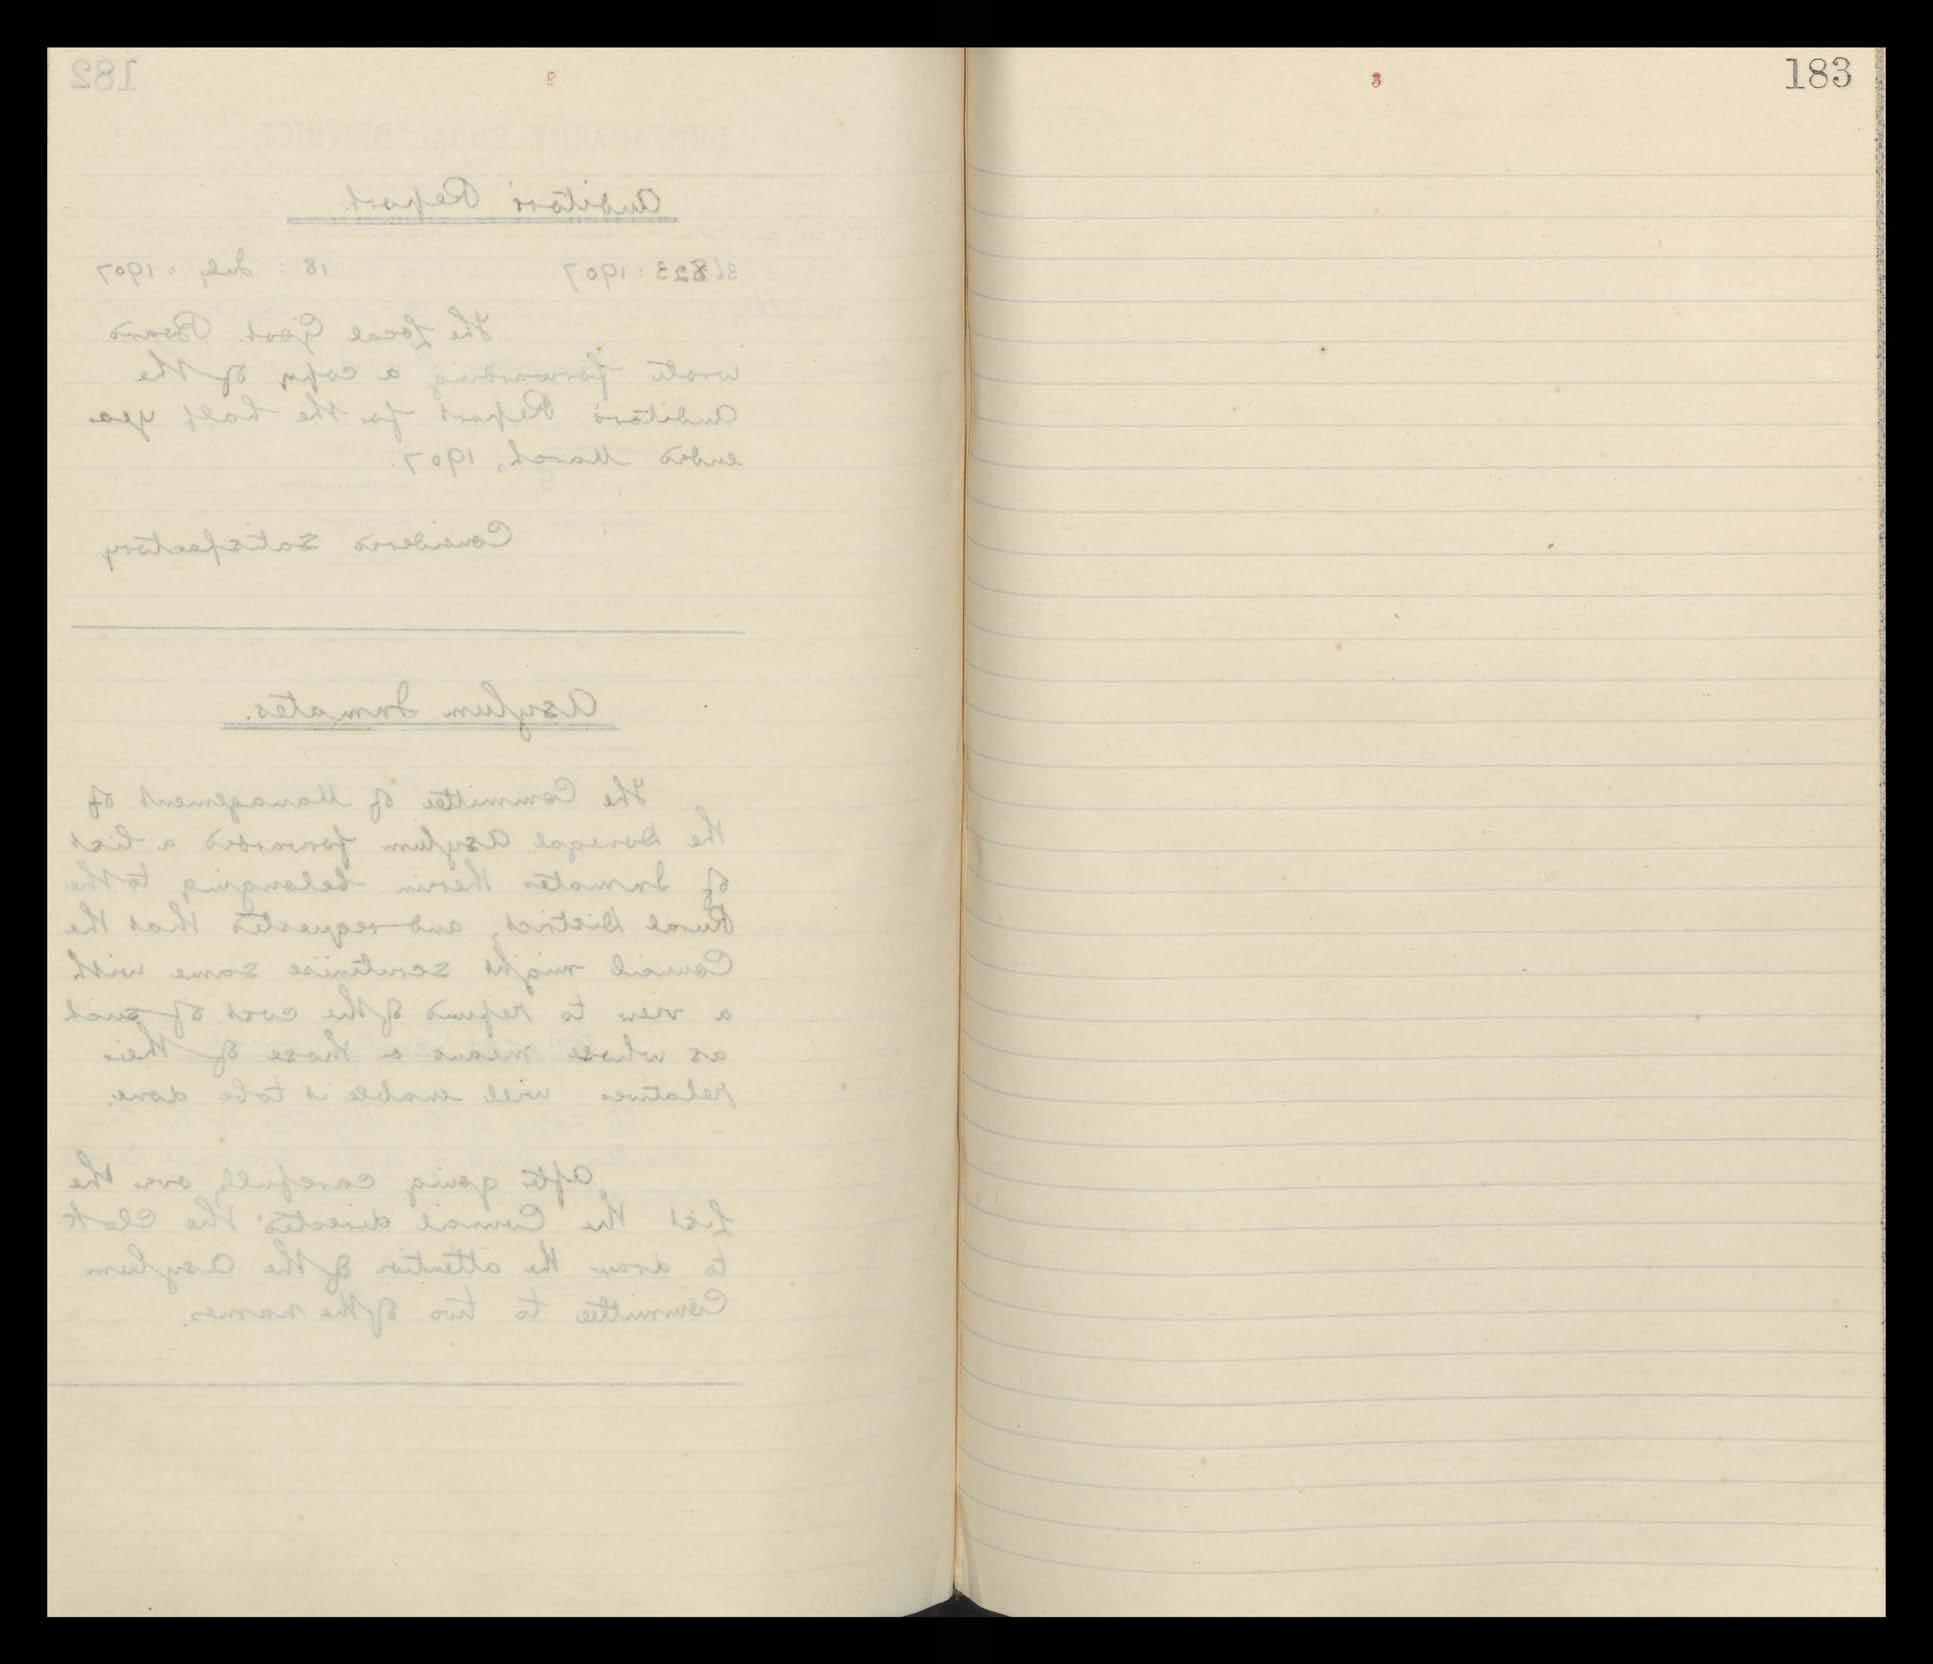 182
Auditors' Report.
36823 : 1907 18 : July : 1907
The Local Govt. Board
wrote forwarding a copy of the
Auditors Report for the half year
ended March, 1907.
Considered satisfactory
Asylum Inmates.
The Committee of Management of
the Donegal Asylum forwarded a list
of Inmates therein belonging to the
Rural District, and requested that the
Council might scrutinise same with
a view to refund of the cost of such
as whose means or those of their
relatives will enable it to be done.
After going carefully over the
List the Council directed the Clerk
to draw the attention of the Asylum
Committee to two of the names.
183
3